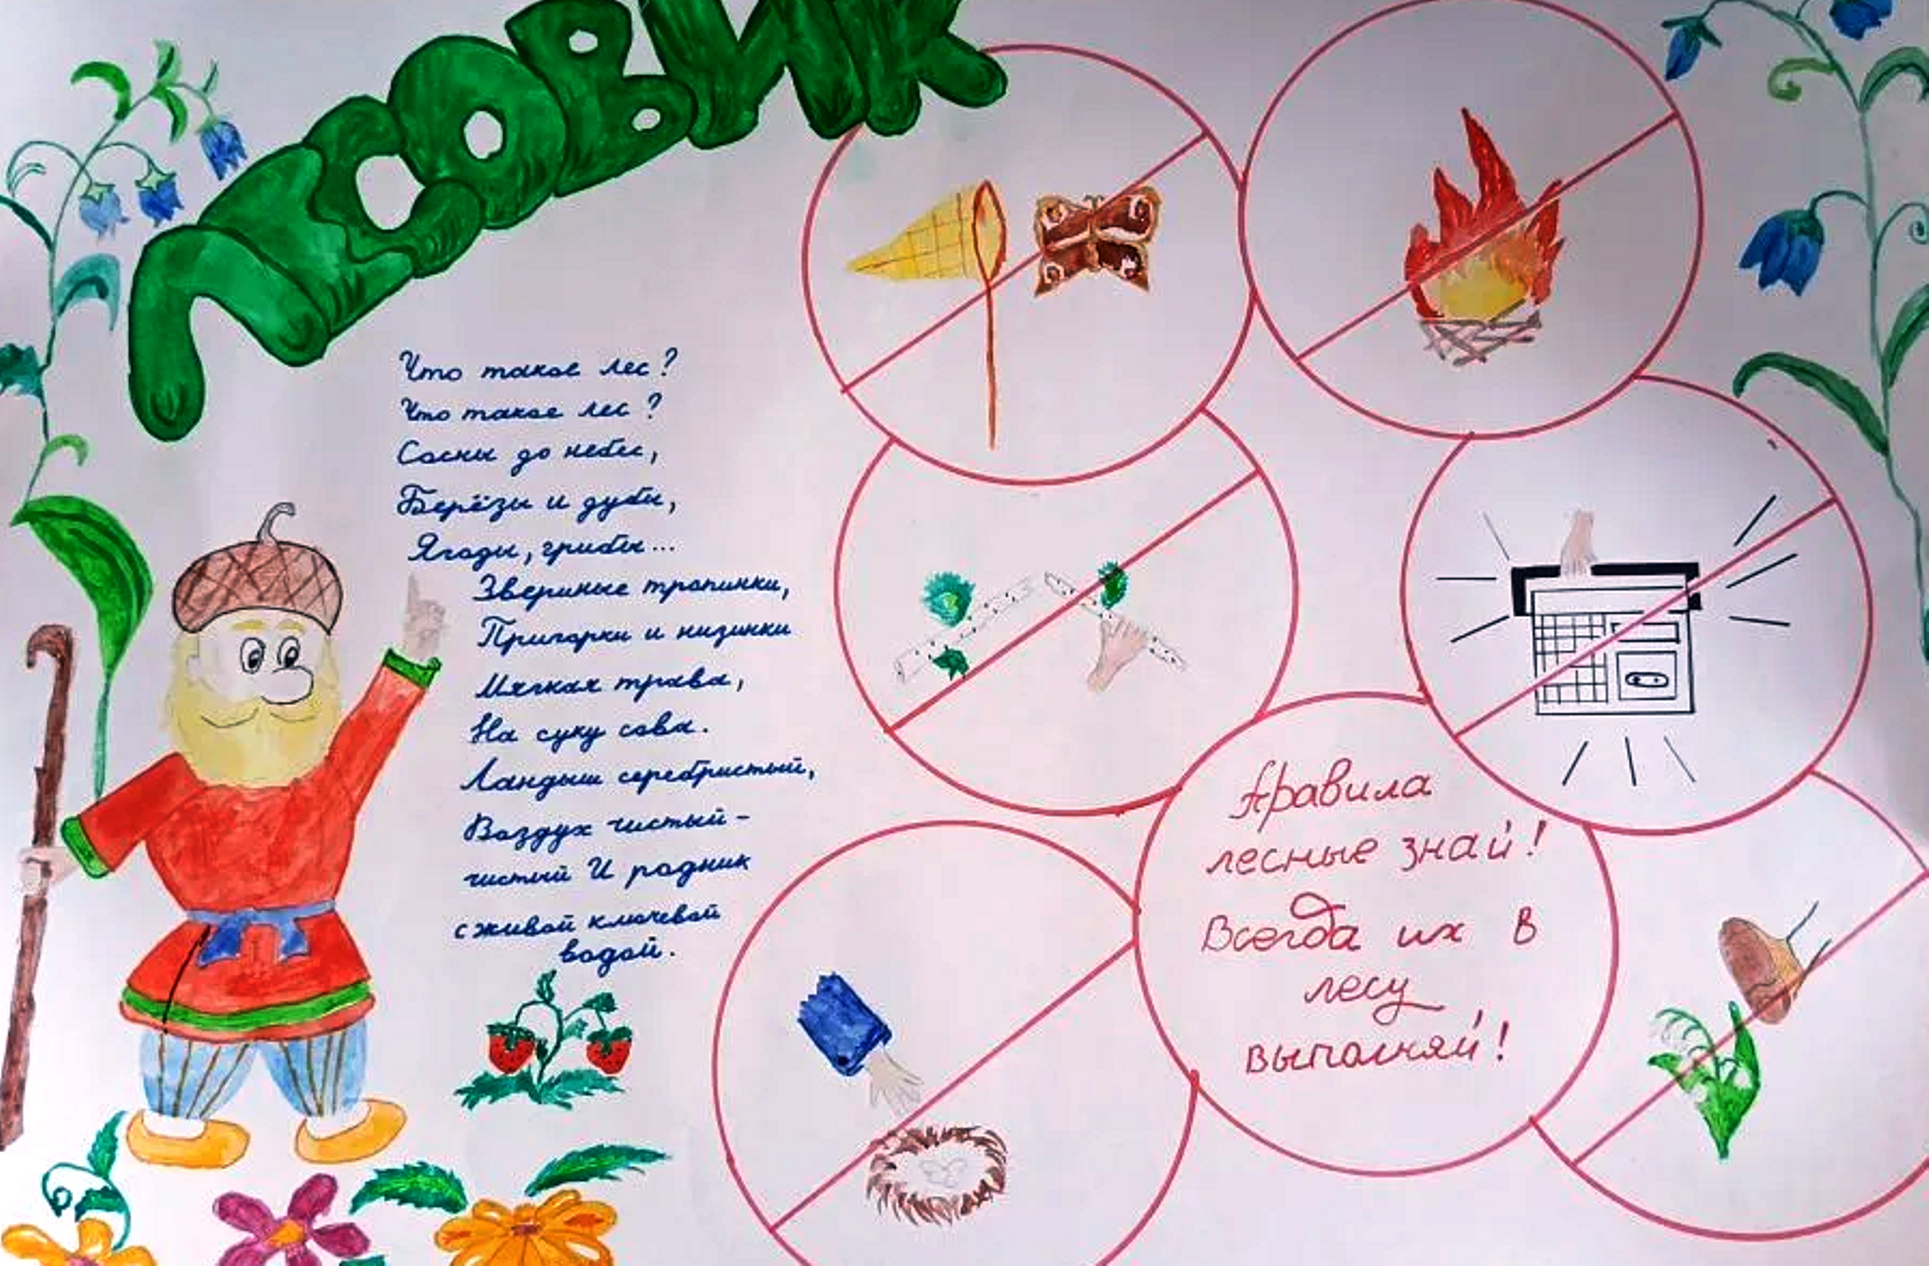 ЛЕСОВИК
Что такое лес?
Что такое лес?
Сосны до небес,
Берёзы и дубы,
Ягоды, грибы...
Звериные тропинки,
Пригорки и низинки
Мягкая трава,
На суку сова.
Ландыш серебристый,
Воздух чистый-
чистый И родник
с живой ключевой
водой.
Правила
лесные знай!
Всегда их в
лесу
выполняй!